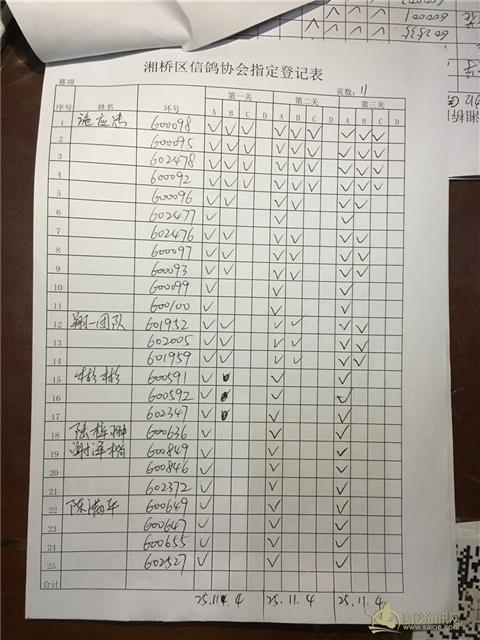 602535
湘桥区信鸽协会指定登记表
赛项 页数: 11
序号 姓名 环号 第一关 第二关 第三关
A B C D A B C D A B C D
1 施应浩 600098 ✓ ✓ ✓ ✓ ✓ ✓ ✓ ✓ ✓
2 600095 ✓ ✓ ✓ ✓ ✓ ✓ ✓ ✓ ✓
3 602478 ✓ ✓ ✓ ✓ ✓ ✓ ✓ ✓ ✓
4 600092 ✓ ✓ ✓ ✓ ✓ ✓ ✓ ✓ ✓
5 600096 ✓ ✓ ✓ ✓ ✓ ✓
6 602477 ✓ ✓ ✓
7 602476 ✓ ✓ ✓ ✓ ✓ ✓
8 600097 ✓ ✓ ✓ ✓ ✓ ✓
9 600093 ✓ ✓ ✓ ✓ ✓ ✓
10 600099 ✓ ✓ ✓
11 600100 ✓ ✓ ✓
12 翔一团队 601952 ✓ ✓ ✓ ✓ ✓ ✓
13 602005 ✓ ✓ ✓ ✓ ✓ ✓
14 601959 ✓ ✓ ✓ ✓ ✓ ✓
15 彬彬 600591 ✓ ✓ ✓
16 600592 ✓ ✓ ✓
17 602347 ✓ ✓ ✓
18 600636 ✓ ✓ ✓
19 谢泽楷 600849 ✓ ✓ ✓
20 600846 ✓ ✓ ✓
21 602372 ✓ ✓ ✓
22 600649 ✓ ✓ ✓
23 600647 ✓ ✓ ✓
24 600655 ✓ ✓ ✓
25 602527 ✓ ✓ ✓
合计
25.11.4 25.11.4 25.11.4